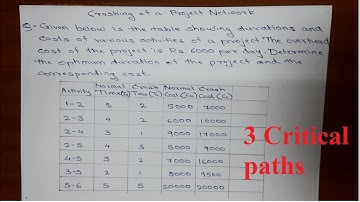 Crashing of a Project Network
Q- Given below is the table showing durations and
costs of various activities of a project. The overhead
cost of the project is Rs 6000 per day. Determine
the optimum duration of the project and the
corresponding cost.
Activity Normal Time(Tn) Crash Time(Tc) Normal Cost(Cn) Crash Cost(Cc)
1-2 3 2 5000 7000
2-3 4 2 6000 10000
2-4 3 1 9000 17000
2-5 4 3 8000 9000
4-5 5 2 7000 16000
3-5 2 1 8000 9500
5-6 5 5 20000 20000
3 Critical
paths